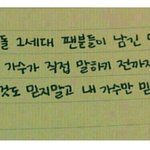 돌 1세대 팬분들이 남긴
가수가 직접 말하기 전까지
것도 믿지말고 내 가수만 믿